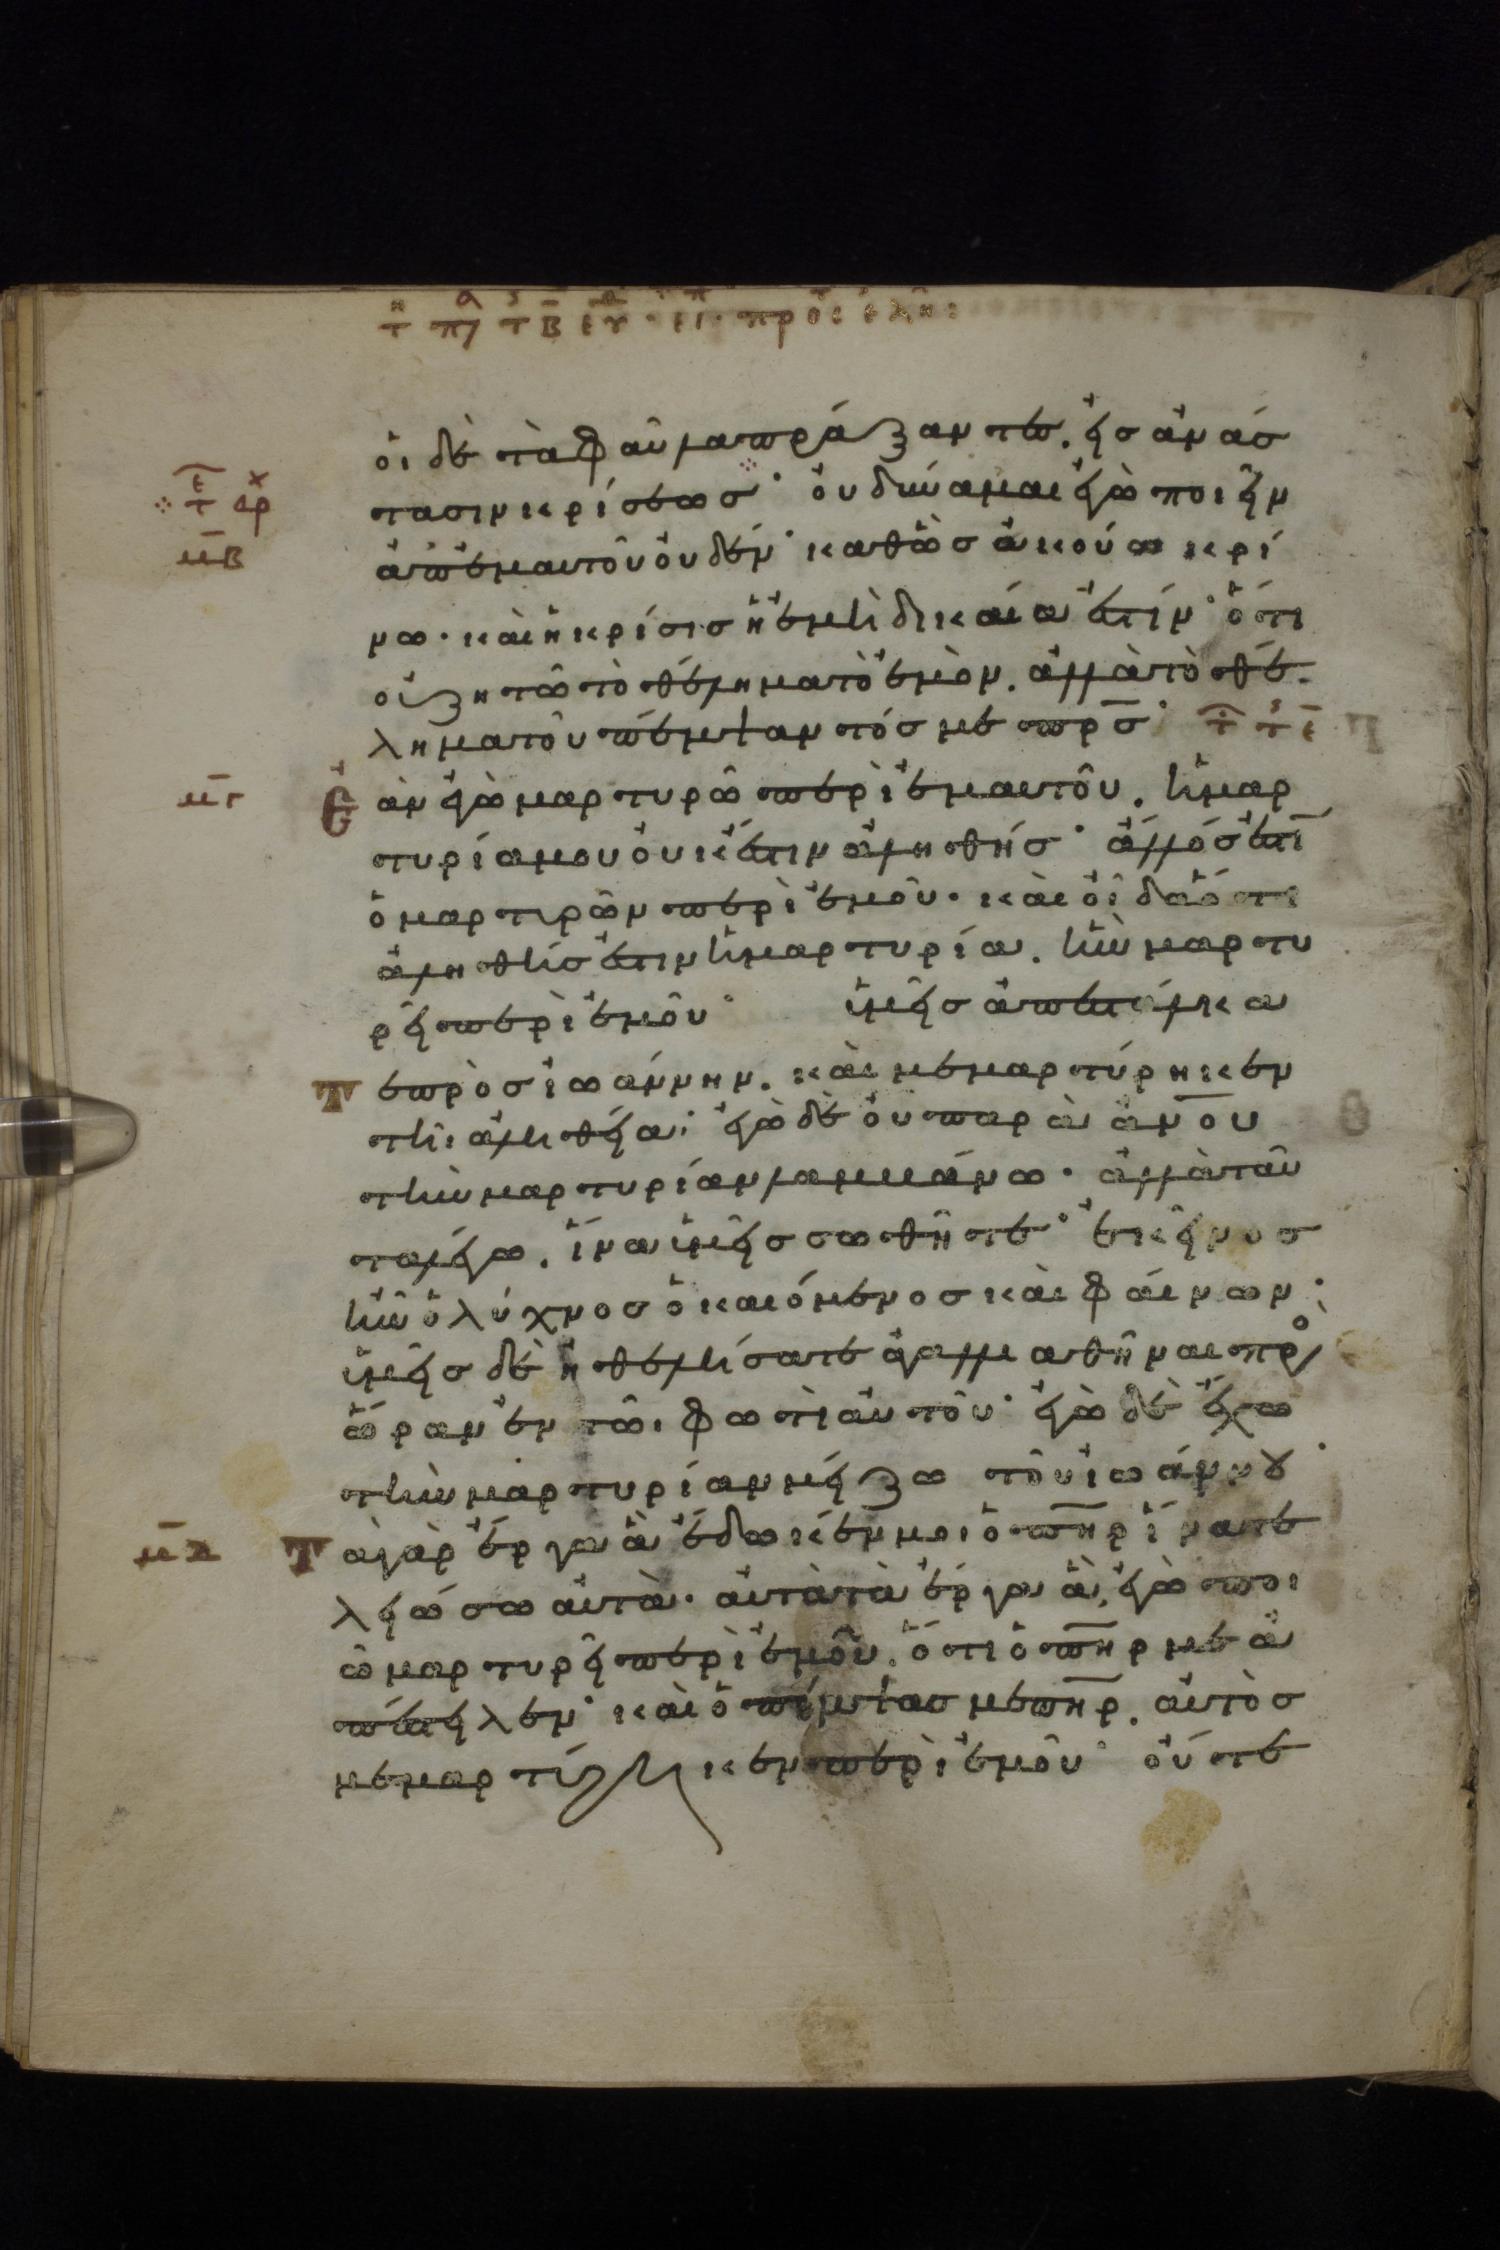 οἱ δὲ τὰ φαῦλα πράξαντες, εἰς ἀνάσ
τασιν κρίσεως· οὐ δύναμαι ἐγὼ ποιεῖν
ἀπ' ἐμαυτοῦ οὐδέν· καθὼς ἀκούω κρί
νω· καὶ ἡ κρίσις ἡ ἐμὴ δικαία ἐστίν· ὅτι
οὐ ζητῶ τὸ θέλημα τὸ ἐμὸν, ἀλλὰ τὸ θέ
λημα τοῦ πέμψαντός με πρ̅ς·
μ̅γ
Ἐὰν ἐγὼ μαρτυρῶ περὶ ἐμαυτοῦ, ἡ μαρ
τυρία μου οὐκ ἔστιν ἀληθής· ἄλλός ἐστι̅
ὁ μαρτυρῶν περὶ ἐμοῦ· καὶ οἶδα ὅτι
ἀληθής ἐστιν ἡ μαρτυρία, ἣν μαρτυ
ρεῖ περὶ ἐμοῦ· ὑμεῖς ἀπεστάλκα
τε πρὸς ἰωάννην, καὶ μεμαρτύρηκεν
τῆι ἀληθεία· ἐγὼ δὲ οὐ παρὰ α̅ν̅ο̅υ
τὴν μαρτυρίαν λαμβάνω· ἀλλὰ ταῦ
τα λέγω, ἵνα ὑμεῖς σωθῆτε· ἐκεῖνος
ἦν ὁ λύχνος ὁ καιόμενος καὶ φαίνων·
ὑμεῖς δὲ ἠθελήσατε ἀγαλλιαθῆναι πρὸ
ὥραν ἐν τῶι φωτὶ αὐτοῦ· ἐγὼ δὲ ἔχω
τὴν μαρτυρίαν μείζω τοῦ ἰωάννου·
μ̅δ
Τὰ γὰρ ἔργα ἃ ἔδωκέν μοι ὁ π̅η̅ρ ἵνα τε
λειώσω αὐτὰ· αὐτὰ τὰ ἔργα ἃ ἐγὼ ποι
ῶ μαρτυρεῖ περὶ ἐμοῦ, ὅτι ὁ π̅η̅ρ με ἀ
πέστειλεν· καὶ ὁ πέμψας με π̅η̅ρ, αὐτὸς
μεμαρτύρηκεν περὶ ἐμοῦ· οὔτε